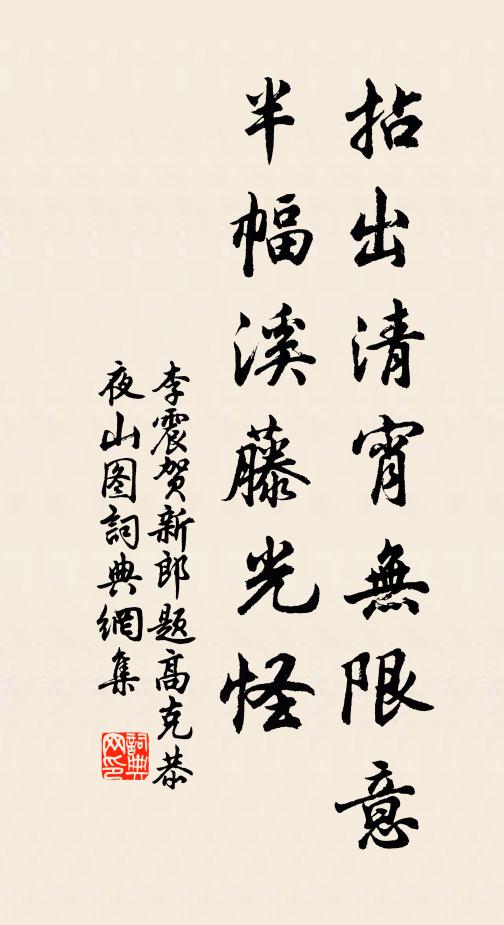 拈出清宵無限意
半幅溪藤光怪
李震賀新郎題高克恭
夜山图詞典網集
詞典网印